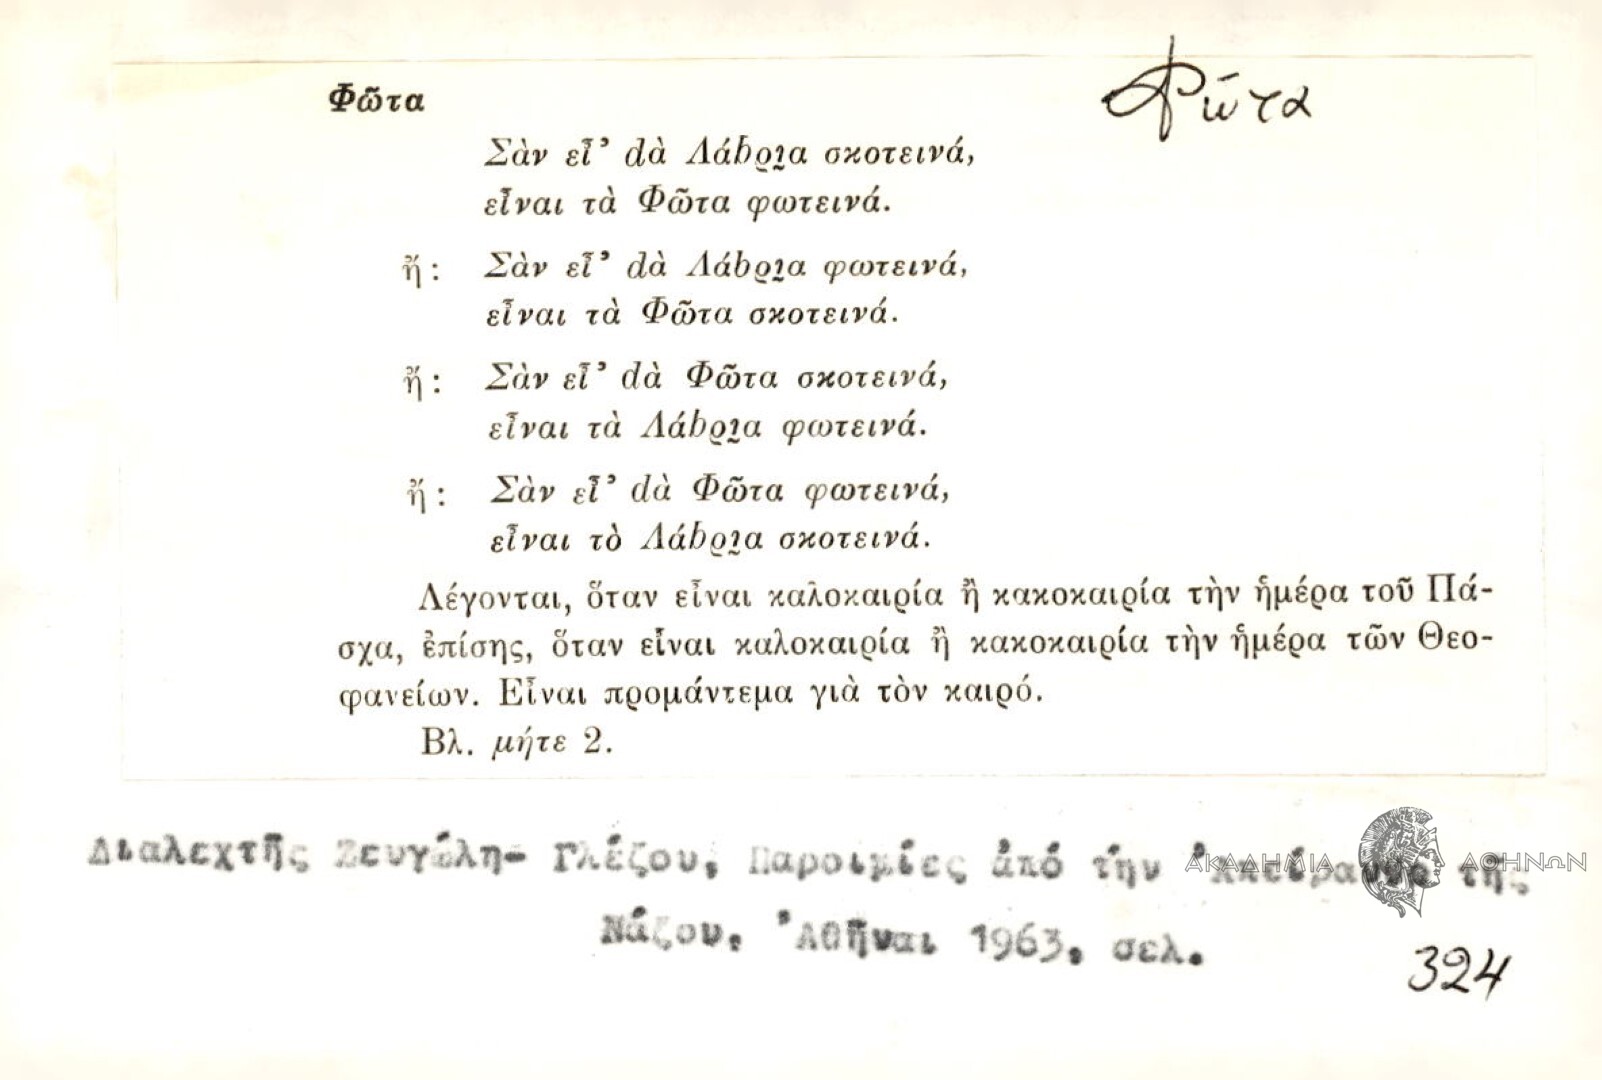 Φῶτα
Φῶτα
Σὰν εἶ' dὰ Λάbρια̯ σκοτεινά,
εἶναι τὰ Φῶτα φωτεινά.
ἤ: Σὰν εἶ' dὰ Λάbρι̯α φωτεινά,
εἶναι τὰ Φῶτα σκοτεινά.
ἤ: Σὰν εἶ' dὰ Φῶτα σκοτεινά,
εἶναι τὰ Λάbρι̯α φωτεινά.
ἤ: Σὰν εἶ' dὰ Φῶτα φωτεινά,
εἶναι τὸ Λάbρι̯α σκοτεινά.
Λέγονται, ὅταν εἶναι καλοκαιρία ἢ κακοκαιρία τὴν ἡμέρα τοῦ Πά-
σχα, ἐπίσης, ὅταν εἶναι καλοκαιρία ἢ κακοκαιρία τὴν ἡμέρα τῶν Θεο-
φανείων. Εἶναι προμάντεμα γιὰ τὸν καιρό.
Βλ. μήτε 2.
Διαλεχτῆς Ζευγώλη- Γλέζου, Παροιμίες ἀπό τήν Ἀπείρανθο τῆς
Νάξου, Ἀθῆναι 1963, σελ.
324
ΑΚΑΔΗΜΙΑ ΑΘΗΝΩΝ